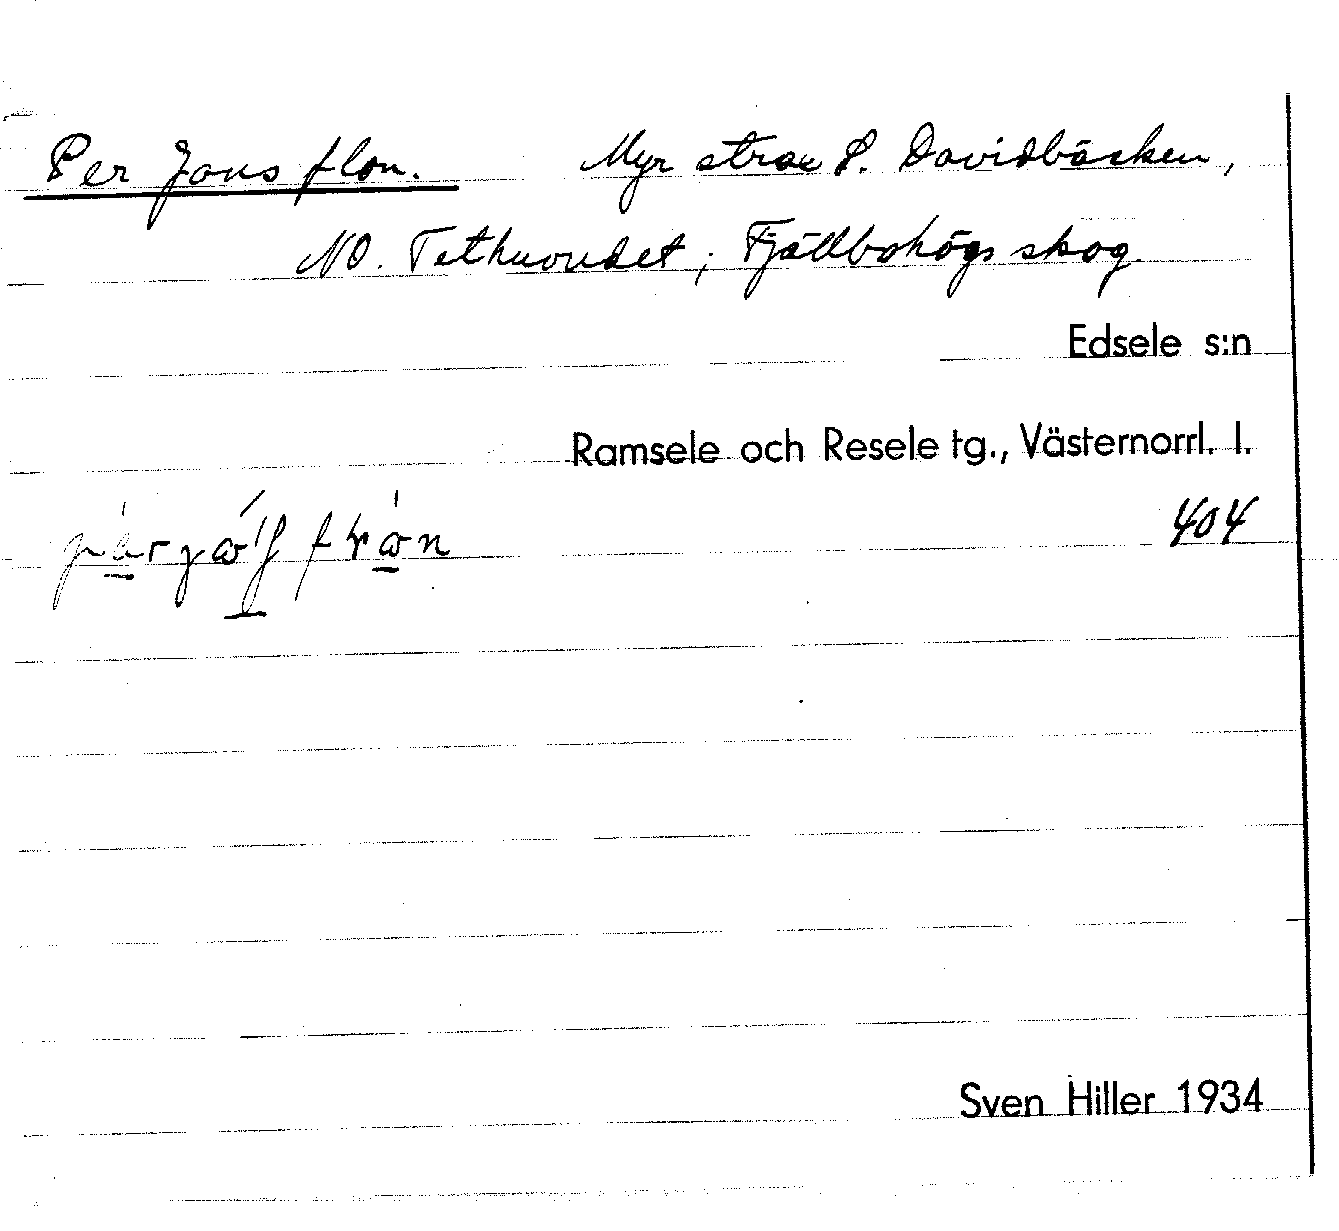 Per Jons flon. Myr strax S. Davidbäcken,
NO. Tethuvudet, Fjällbohögs skog.
Edsele s:n
Ramsele och Resele tg., Västernorrl. l.
404
Sven Hiller 1934